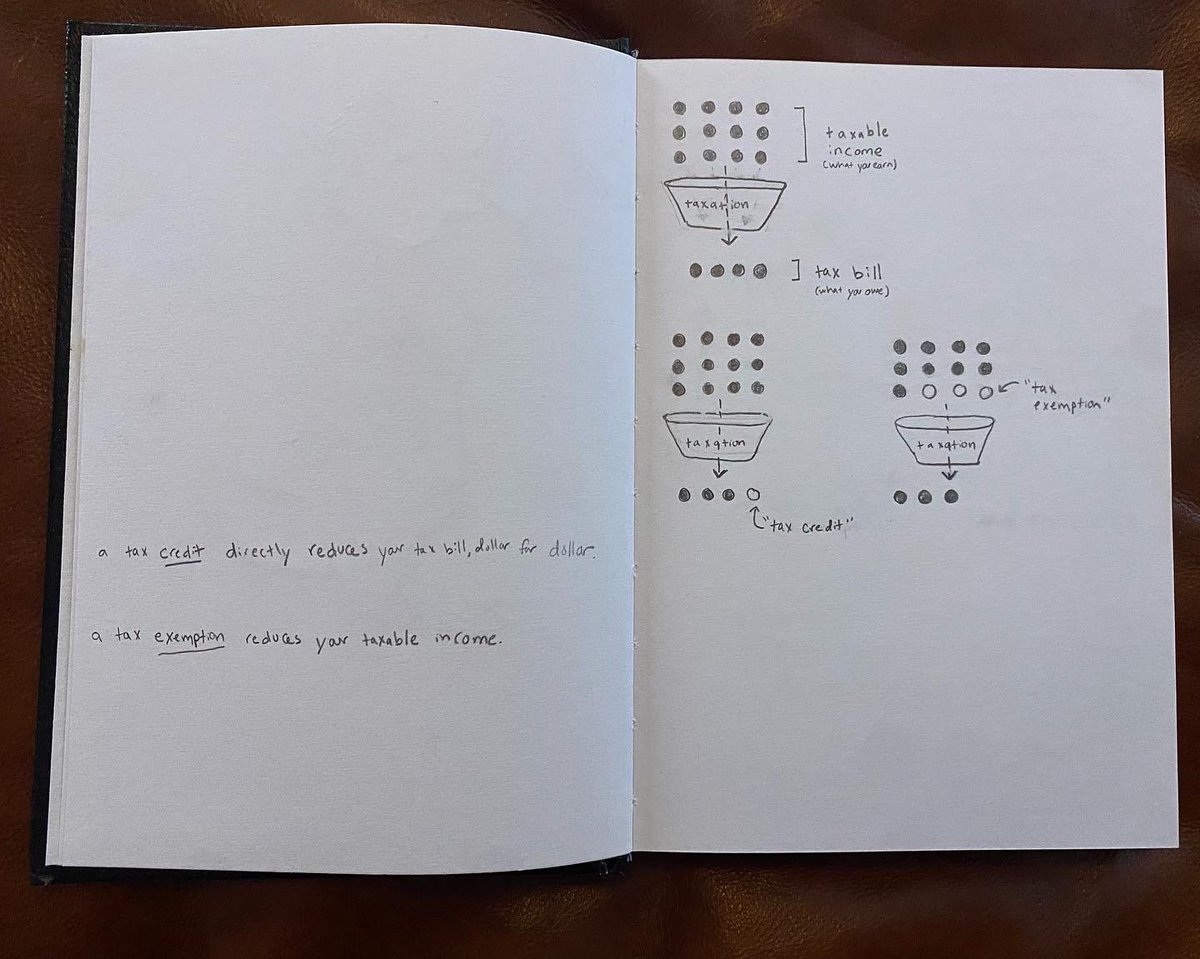 a tax credit directly reduces your tax bill, dollar for dollar.
a tax exemption reduces your taxable income.
taxable
income
(what you earn)
taxation
tax bill
(what you owe)
taxation
"tax credit"
"tax
exemption"
taxation